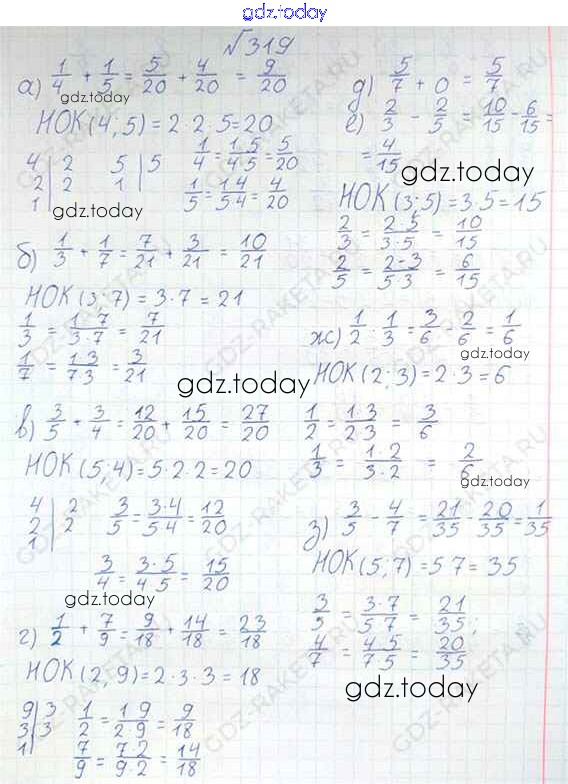 gdz.today
№319
а) 1/4 + 1/5 = 5/20 + 4/20 = 9/20
gdz.today
НОК(4;5) = 2·2·5 = 20
4 | 2   5 | 5   1/4 = 1·5/4·5 = 5/20
2 | 2   1 |   1/5 = 1·4/5·4 = 4/20
1 |
gdz.today
б) 1/3 + 1/7 = 7/21 + 3/21 = 10/21
НОК(3;7) = 3·7 = 21
1/3 = 1·7/3·7 = 7/21
1/7 = 1·3/7·3 = 3/21
gdz.today
в) 3/5 + 3/4 = 12/20 + 15/20 = 27/20
НОК(5;4) = 5·2·2 = 20
4 | 2   3/5 = 3·4/5·4 = 12/20
2 | 2
1 |
3/4 = 3·5/4·5 = 15/20
gdz.today
г) 1/2 + 7/9 = 9/18 + 14/18 = 23/18
НОК(2,9) = 2·3·3 = 18
9 | 3   1/2 = 1·9/2·9 = 9/18
3 | 3
1 |   7/9 = 7·2/9·2 = 14/18
д) 5/7 + 0 = 5/7
gdz.today
е) 2/3 - 2/5 = 10/15 - 6/15 =
= 4/15
НОК(3;5) = 3·5 = 15
2/3 = 2·5/3·5 = 10/15
2/5 = 2·3/5·3 = 6/15
gdz.today
ж) 1/2 - 1/3 = 3/6 - 2/6 = 1/6
gdz.today
НОК(2;3) = 2·3 = 6
1/2 = 1·3/2·3 = 3/6
1/3 = 1·2/3·2 = 2/6
gdz.today
з) 3/5 - 4/7 = 21/35 - 20/35 = 1/35
НОК(5;7) = 5·7 = 35
3/5 = 3·7/5·7 = 21/35;
4/7 = 4·5/7·5 = 20/35
gdz.today
GDZ-RAKETA.RU